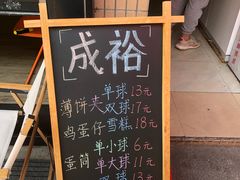 成裕
单球13元
薄饼夹双球17元
鸡蛋仔雪糕18元
单小球6元
蛋筒单大球11元
双球13元